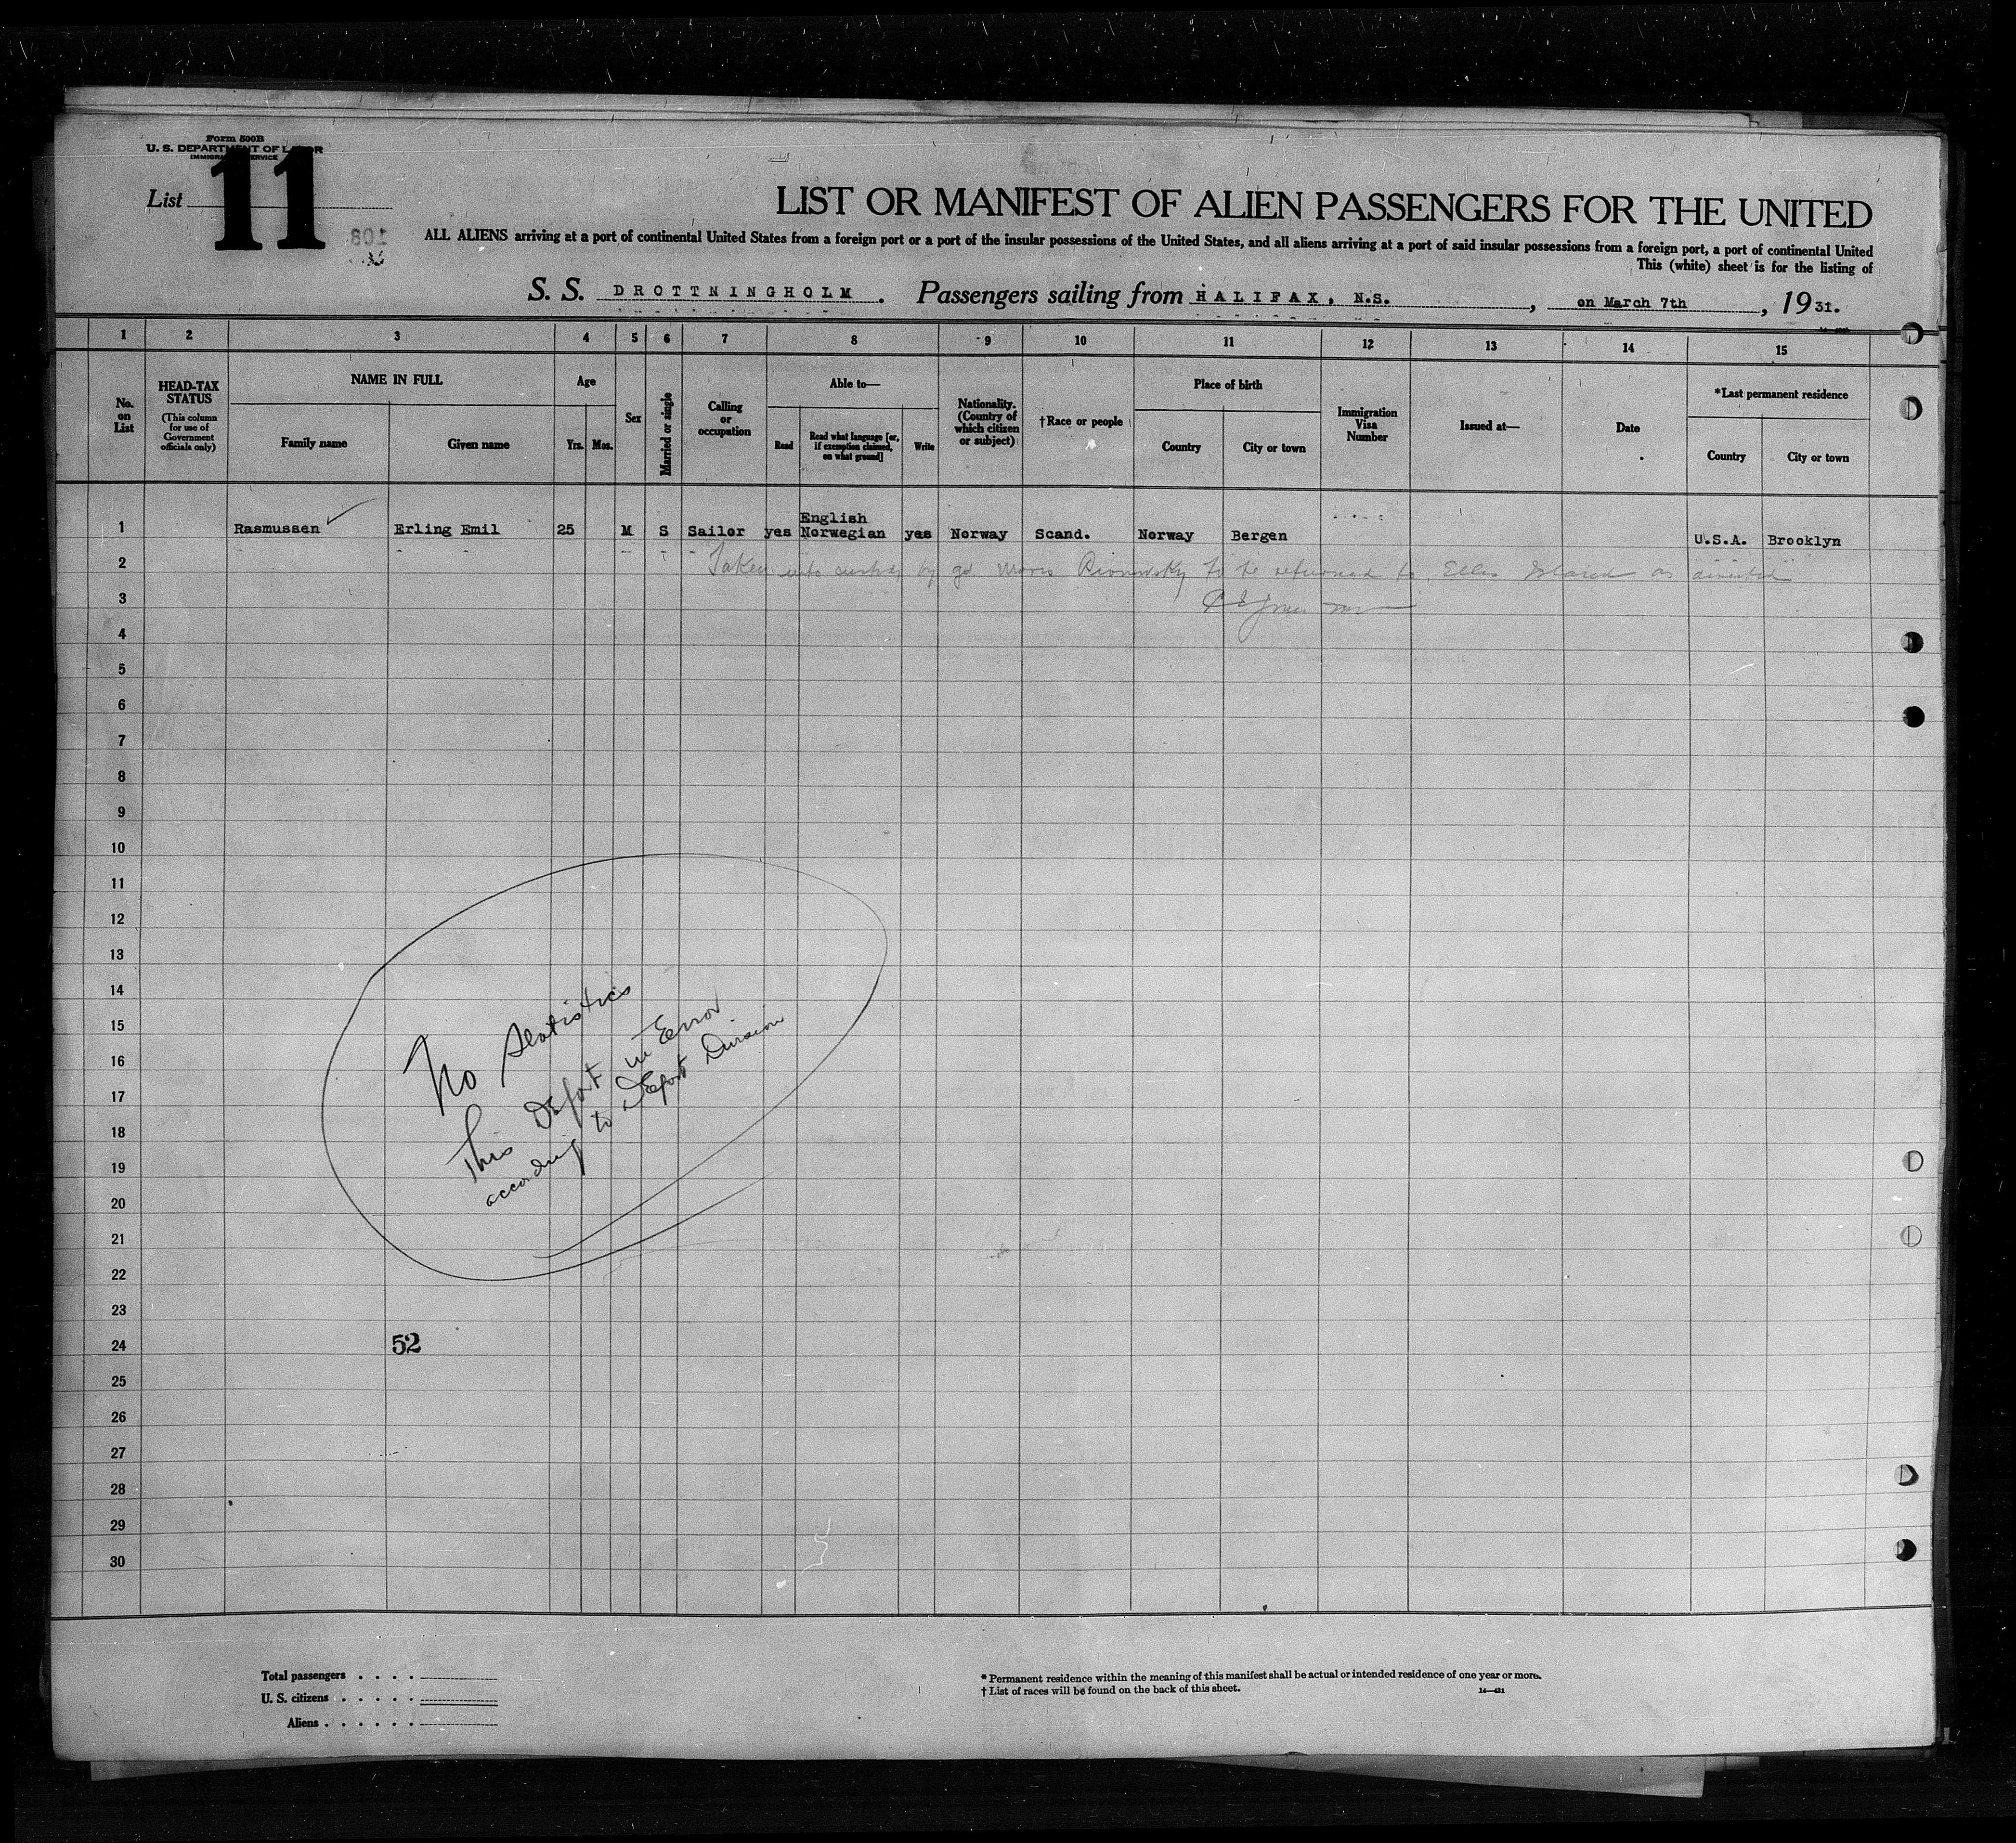 Form 500B
U. S. DEPARTMENT OF LABOR
IMMIGRATION SERVICE
List 11
LIST OR MANIFEST OF ALIEN PASSENGERS FOR THE UNITED
ALL ALIENS arriving at a port of continental United States from a foreign port or a port of the insular possessions of the United States, and all aliens arriving at a port of said insular possessions from a foreign port, a port of continental United
This (white) sheet is for the listing of
S. S. DROTTNINGHOLM. Passengers sailing from HALIFAX, N.S., on March 7th, 1931.
1 2 3 4 5 6 7 8 9 10 11 12 13 14 15
No. on List
HEAD-TAX STATUS (This column for use of Government officials only)
NAME IN FULL
Family name Given name
Age
Yrs. Mos.
Sex
Married or single
Calling or occupation
Able to—
Read Read what language [or, if exemption claimed, on what ground] Write
Nationality. (Country of which citizen or subject)
†Race or people
Place of birth
Country City or town
Immigration Visa Number
Issued at—
Date
*Last permanent residence
Country City or town
1 Rasmussen Erling Emil 25 M S Sailor yes English Norwegian yes Norway Scand. Norway Bergen U.S.A. Brooklyn
2 Taken into custody by to be returned to Ellis Island as
3
4
5
6
7
8
9
10
11
12
13
14
15
16
17
18
19
20
21
22
23
24
25
26
27
28
29
30
No Statistics
This Deport in Error
according to Deport Division
52
Total passengers . . . .
U. S. citizens . . . . .
Aliens . . . . . .
* Permanent residence within the meaning of this manifest shall be actual or intended residence of one year or more.
† List of races will be found on the back of this sheet.
14—421